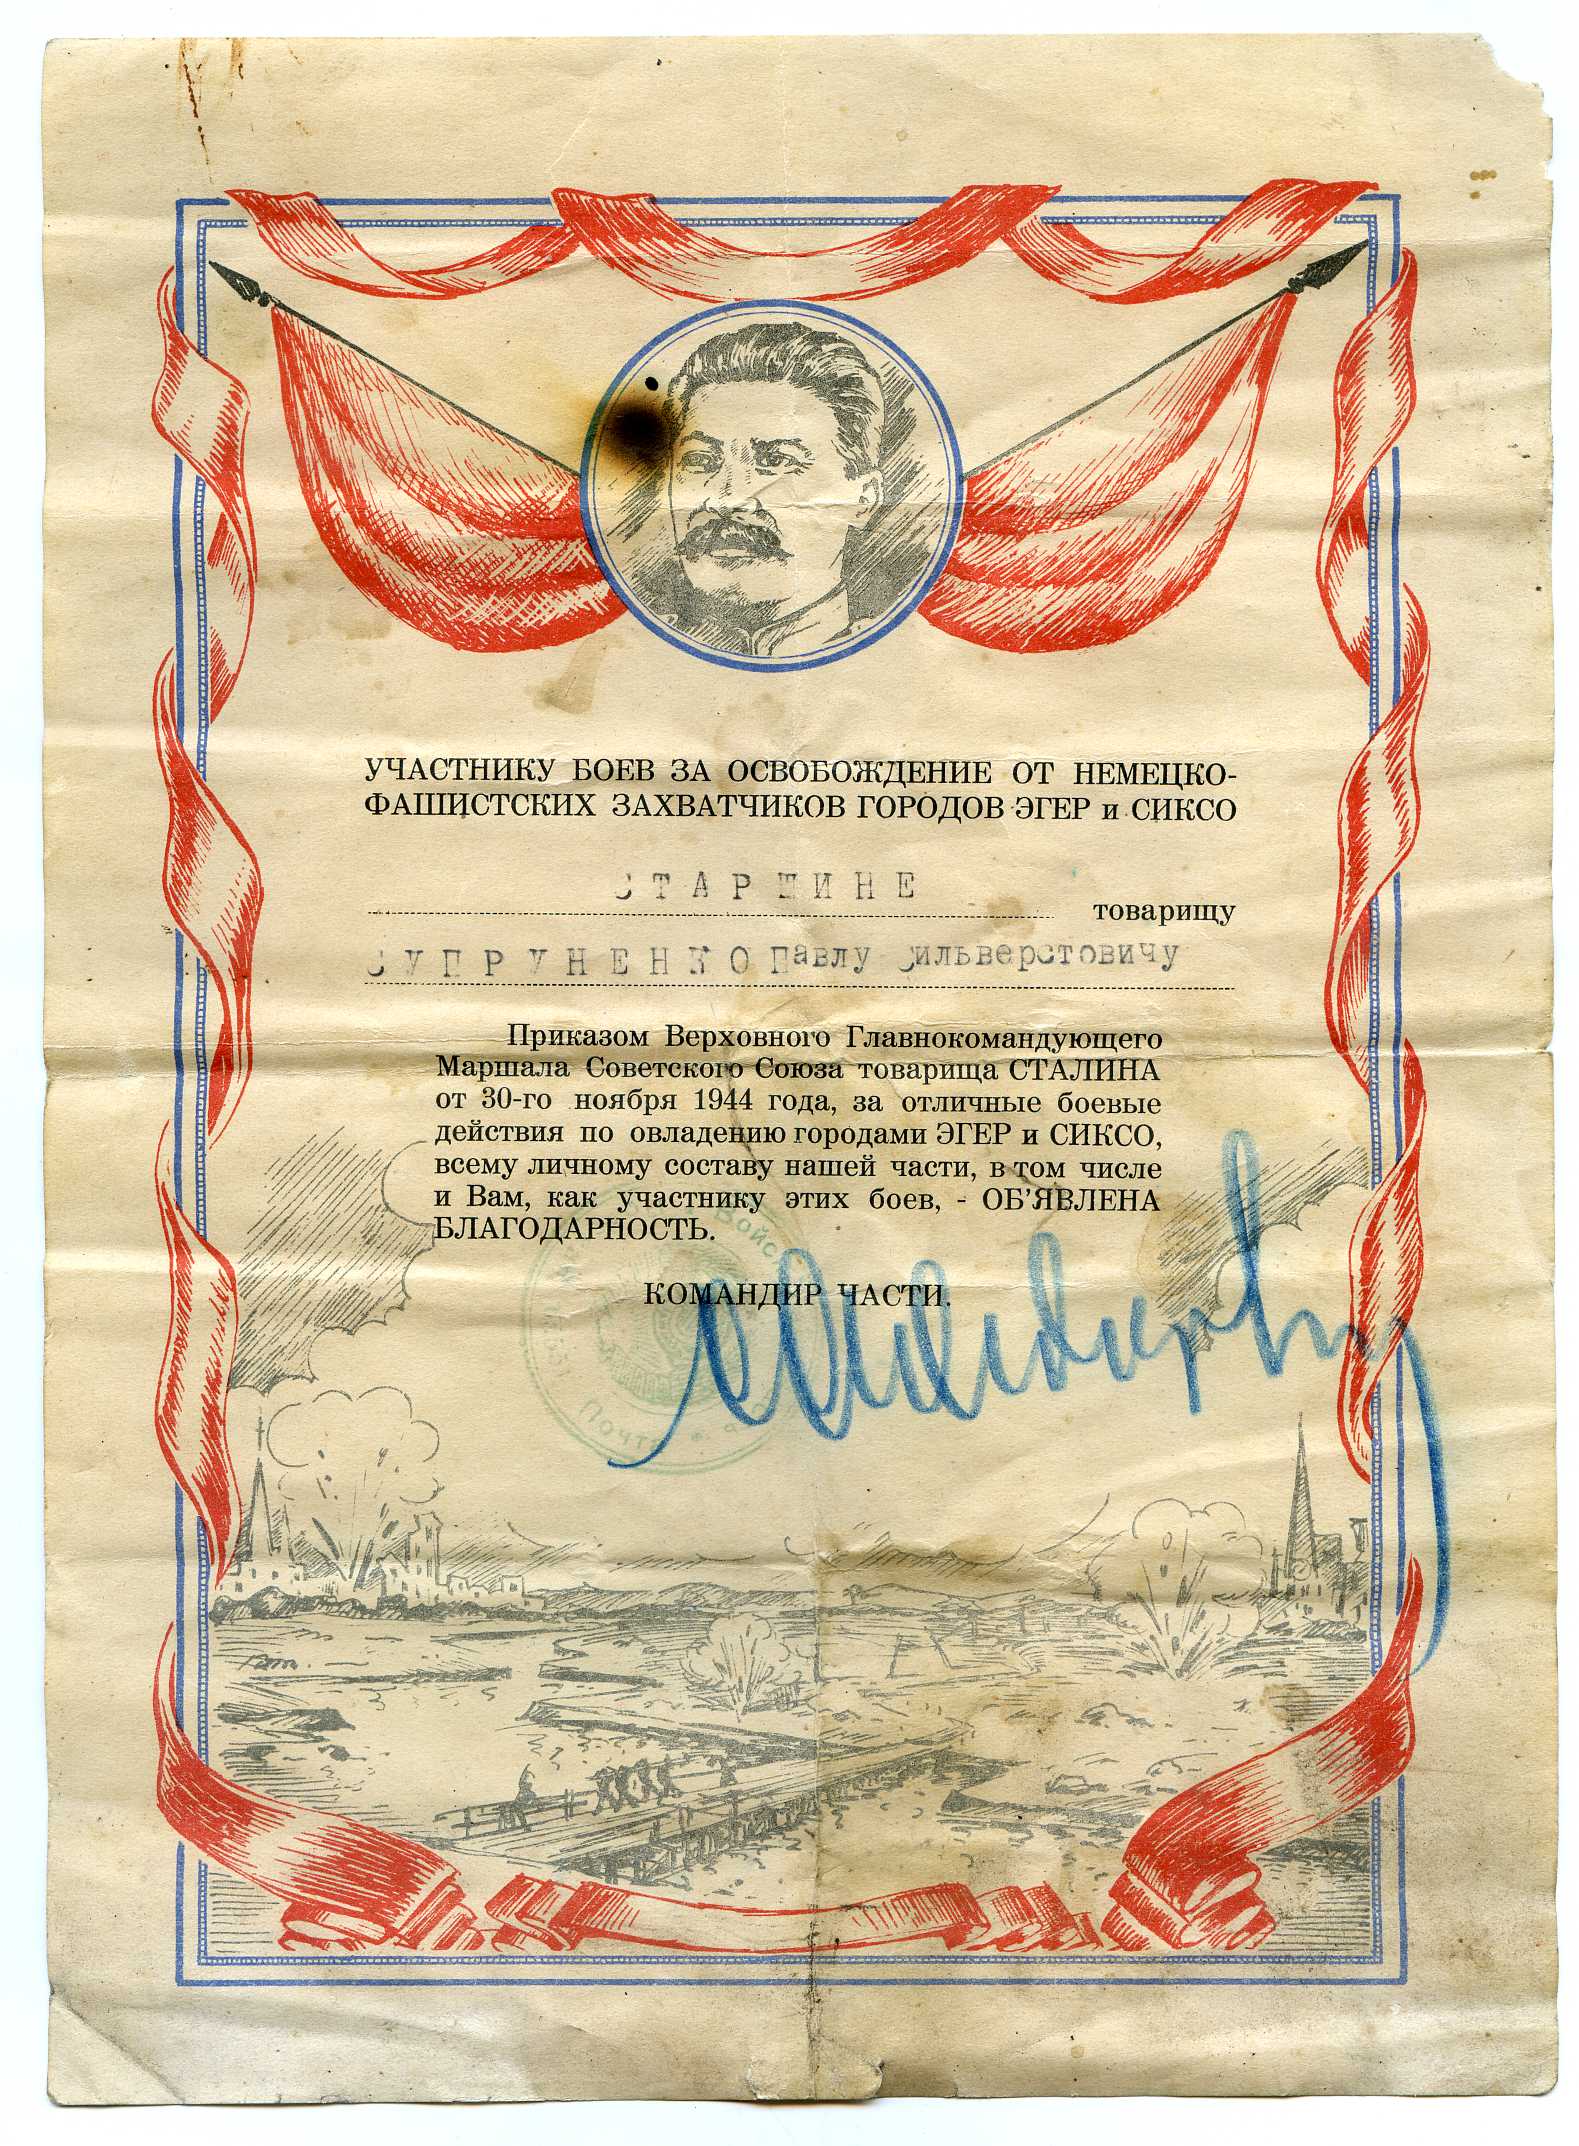 УЧАСТНИКУ БОЕВ ЗА ОСВОБОЖДЕНИЕ ОТ НЕМЕЦКО-
ФАШИСТСКИХ ЗАХВАТЧИКОВ ГОРОДОВ ЭГЕР и СИКСО
СТАРШИНЕ
товарищу
СУПРУНЕНКО Павлу Сильверстовичу
Приказом Верховного Главнокомандующего
Маршала Советского Союза товарища СТАЛИНА
от 30-го ноября 1944 года, за отличные боевые
действия по овладению городами ЭГЕР и СИКСО,
всему личному составу нашей части, в том числе
и Вам, как участнику этих боев, - ОБ'ЯВЛЕНА
БЛАГОДАРНОСТЬ.
КОМАНДИР ЧАСТИ.